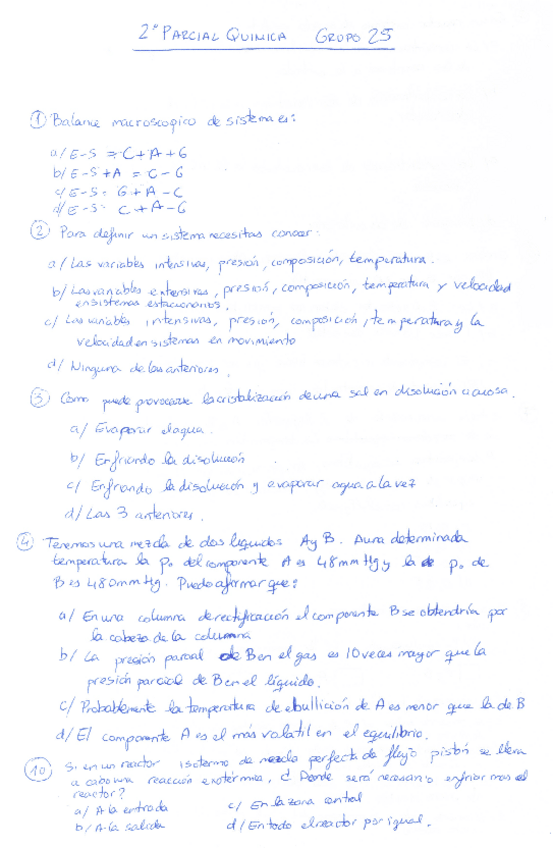 2º PARCIAL QUIMICA GRUPO 25
① Balance macroscopico de sistema es:
a/ E-S = C+A+G
b/ E-S+A = C-G
c/ E-S= G+A-C
d/ E-S= C+A-G
② Para definir un sistema necesitas conocer:
a/ Las variables intensivas, presión, composición, temperatura.
b/ Las variables extensivas, presión, composición, temperatura y velocidad
en sistemas estacionarios.
c/ Las variables intensivas, presión, composición, temperatura y la
velocidad en sistemas en movimiento
d/ Ninguna de las anteriores.
③ Cómo puede provocarse la cristalización de una sal en disolución acuosa.
a/ Evaporar el agua.
b/ Enfriando la disolución
c/ Enfriando la disolución y evaporar agua a la vez
d/ Las 3 anteriores.
④ Tenemos una mezcla de dos líquidos A y B. A una determinada
temperatura la Pº del componente A es 48 mm Hg y la Pº de
B es 480 mm Hg. Puedo afirmar que:
a/ En una columna de rectificación el componente B se obtendría por
la cabeza de la columna
b/ La presión parcial de B en el gas es 10 veces mayor que la
presión parcial de B en el líquido.
c/ Probablemente la temperatura de ebullición de A es menor que la de B
d/ El componente A es el más volatil en el equilibrio.
⑩ Si en un reactor isotermo de mezcla perfecta de flujo pistón se lleva
a cabo una reacción exotérmica, ¿Donde será necesario enfriar mas el
reactor?
a/ A la entrada c/ En la zona central
b/ A la salida d/ En todo el reactor por igual.